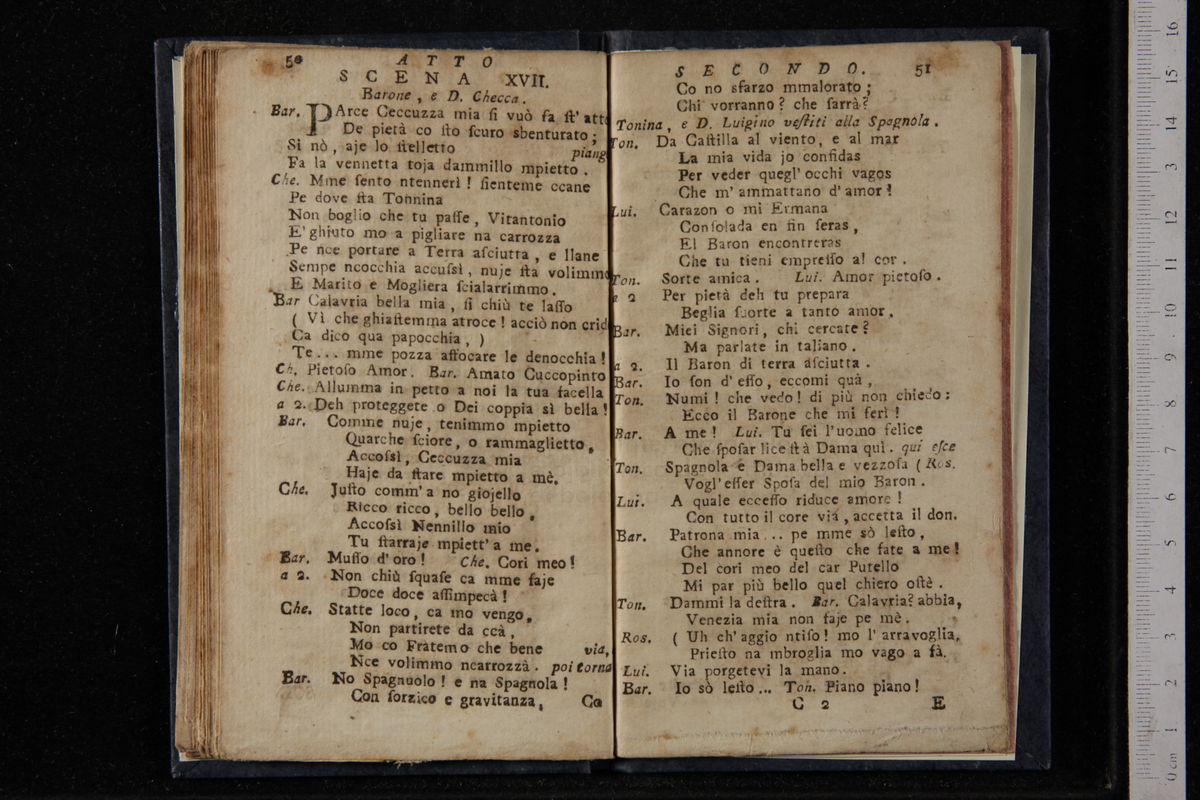 50 ATTO
SCENA XVII.
Barone, e D. Checca.
Bar. PArce Ceccuzza mia ſi vuò fa ſt' atto
De pietà co ſto ſcuro sbenturato;
Si nò, aje lo ſtelletto piang
Fa la vennetta toja dammillo mpietto.
Che. Mme ſento ntennerì! ſienteme ccane
Pe dove ſta Tonnina
Non boglio che tu paſſe, Vitantonio
E' ghiuto mo a pigliare na carrozza
Pe nce portare a Terra aſciutta, e llane
Sempe ncocchia accuſsì, nuje ſta volimmo
E Marito e Mogliera ſcialarrimmo.
Bar Calavria bella mia, ſi chiù te laſſo
( Vì che ghiaſtemma atroce! acciò non crid
Ca dico qua papocchia, )
Te... mme pozza affocare le denocchia!
Ch. Pietoſo Amor. Bar. Amato Cuccopinto
Che. Allumma in petto a noi la tua facella
a 2. Deh proteggete o Dei coppia sì bella!
Bar. Comme nuje, tenimmo mpietto
Quarche ſciore, o rammaglietto,
Accoſsì, Ceccuzza mia
Haje da ſtare mpietto a mè.
Che. Juſto comm' a no giojello
Ricco ricco, bello bello,
Accoſsì Nennillo mio
Tu ſtarraje mpiett' a me.
Bar. Muſſo d' oro! Che. Cori meo!
a 2. Non chiù ſquaſe ca mme faje
Doce doce aſſimpecà!
Che. Statte loco, ca mo vengo,
Non partirete da ccà,
Mo co Fratemo che bene via,
Nce volimmo ncarrozzà. poi torna
Bar. No Spagnuolo! e na Spagnola!
Con ſorzico e gravitanza, Co
SECONDO. 51
Co no sfarzo mmalorato;
Chi vorranno? che ſarrà?
Tonina, e D. Luigino veſtiti alla Spagnola.
Ton. Da Caſtilla al viento, e al mar
La mia vida jo confidas
Per veder quegl' occhi vagos
Che m' ammattano d' amor!
Lui. Carazon o mi Ermana
Conſolada en fin ſeras,
El Baron encontreras
Che tu tieni empreſſo al cor.
Ton. Sorte amica. Lui. Amor pietoſo.
a 2 Per pietà deh tu prepara
Beglia ſuorte a tanto amor.
Bar. Miei Signori, chi cercate?
Ma parlate in taliano.
a 2. Il Baron di terra aſciutta.
Bar. Io ſon d' eſſo, eccomi quà,
Ton. Numi! che vedo! di più non chiedo:
Ecco il Barone che mi ferì!
Bar. A me! Lui. Tu ſei l'uomo felice
Che ſpoſar lice ſtà Dama quì. qui eſce
Ton. Spagnola e Dama bella e vezzoſa ( Ros.
Vogl' eſſer Spoſa del mio Baron.
Lui. A quale ecceſſo riduce amore!
Con tutto il core via, accetta il don.
Bar. Patrona mia... pe mme sò leſto,
Che annore è queſto che fate a me!
Del cori meo del car Putello
Mi par più bello quel chiero oſtè.
Ton. Dammi la deſtra. Bar. Calavria? abbia,
Venezia mia non faje pe mè.
Ros. ( Uh ch' aggio ntiſo! mo l' arravoglia,
Prieſto na mbroglia mo vago a fà.
Lui. Via porgetevi la mano.
Bar. Io sò leſto... Ton. Piano piano!
C 2 E
0 cm 1 2 3 4 5 6 7 8 9 10 11 12 13 14 15 16